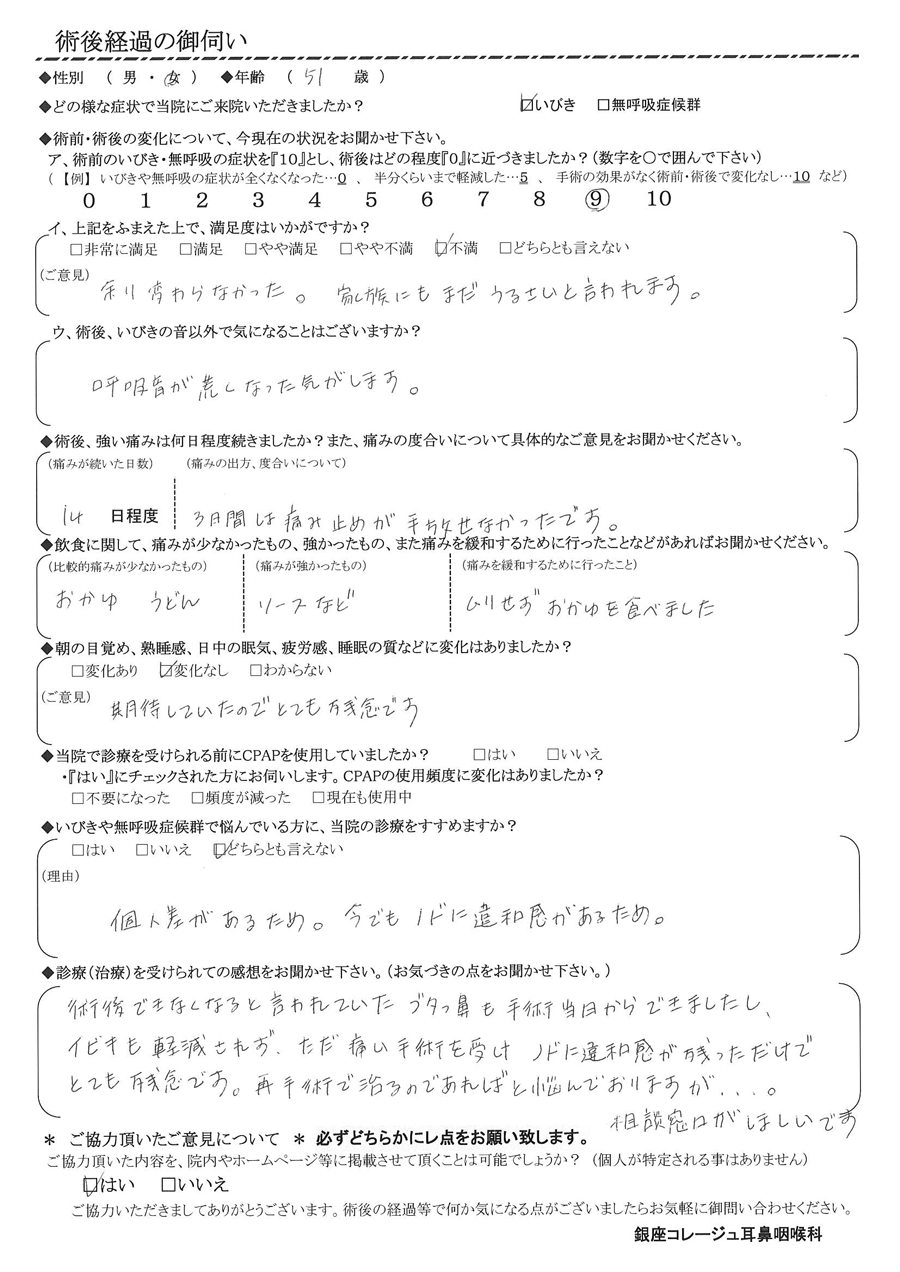 術後経過の御伺い
◆性別 （ 男 ・ 女 ） ◆年齢 （ 51 歳 ）
◆どの様な症状で当院にご来院いただきましたか？ ☑いびき □無呼吸症候群
◆術前・術後の変化について、今現在の状況をお聞かせ下さい。
ア、術前のいびき・無呼吸の症状を『10』とし、術後はどの程度『0』に近づきましたか？（数字を○で囲んで下さい）
（ 【例】 いびきや無呼吸の症状が全くなくなった…0 、 半分くらいまで軽減した…5 、 手術の効果がなく術前・術後で変化なし…10 など）
0 1 2 3 4 5 6 7 8 9 10
イ、上記をふまえた上で、満足度はいかがですか？
□非常に満足 □満足 □やや満足 □やや不満 ☑不満 □どちらとも言えない
（ご意見）
余り変わらなかった。 家族にもまだうるさいと言われます。
ウ、術後、いびきの音以外で気になることはございますか？
呼吸音が荒くなった気がします。
◆術後、強い痛みは何日程度続きましたか？また、痛みの度合いについて具体的なご意見をお聞かせください。
（痛みが続いた日数） （痛みの出方、度合いについて）
14 日程度 3日間は痛み止めが手放せなかったです。
◆飲食に関して、痛みが少なかったもの、強かったもの、また痛みを緩和するために行ったことなどがあればお聞かせください。
（比較的痛みが少なかったもの） （痛みが強かったもの） （痛みを緩和するために行ったこと）
おかゆ うどん ソースなど ムリせずおかゆを食べました
◆朝の目覚め、熟睡感、日中の眠気、疲労感、睡眠の質などに変化はありましたか？
□変化あり ☑変化なし □わからない
（ご意見）
期待していたのでとても残念です
◆当院で診療を受けられる前にCPAPを使用していましたか？ □はい □いいえ
・『はい』にチェックされた方にお伺いします。CPAPの使用頻度に変化はありましたか？
□不要になった □頻度が減った □現在も使用中
◆いびきや無呼吸症候群で悩んでいる方に、当院の診療をすすめますか？
□はい □いいえ ☑どちらとも言えない
（理由）
個人差があるため。今でもノドに違和感があるため。
◆診療（治療）を受けられての感想をお聞かせ下さい。（お気づきの点をお聞かせ下さい。）
術後できなくなると言われていたブタっ鼻も手術当日からできましたし、
イビキも軽減されず、ただ痛い手術を受けノドに違和感が残っただけで
とても残念です。再手術で治るのであればと悩んでおりますが、...。
相談窓口がほしいです
＊ ご協力頂いたご意見について ＊ 必ずどちらかにレ点をお願い致します。
ご協力頂いた内容を、院内やホームページ等に掲載させて頂くことは可能でしょうか？ （個人が特定される事はありません）
☑はい □いいえ
ご協力いただきましてありがとうございます。術後の経過等で何か気になる点がございましたらお気軽に御問い合わせください。
銀座コレージュ耳鼻咽喉科